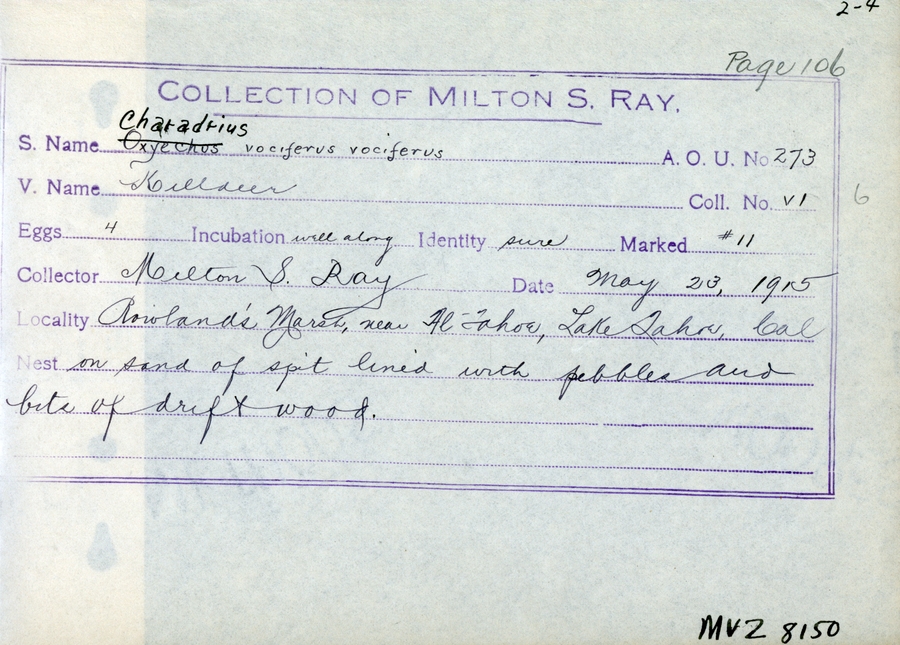 2-4
Page 106
COLLECTION OF MILTON S. RAY.
Charadrius
S. Name Oxyechus vociferus vociferus A. O. U. No 273
V. Name Killdeer Coll. No. VI 6
Eggs 4 Incubation well along Identity sure Marked #11
Collector Milton S. Ray Date May 23, 1915
Locality Rowland's Marsh, near Al-Tahoe, Lake Tahoe, Cal
Nest on sand of spit lined with pebbles and
bits of drift wood.
MVZ 8150